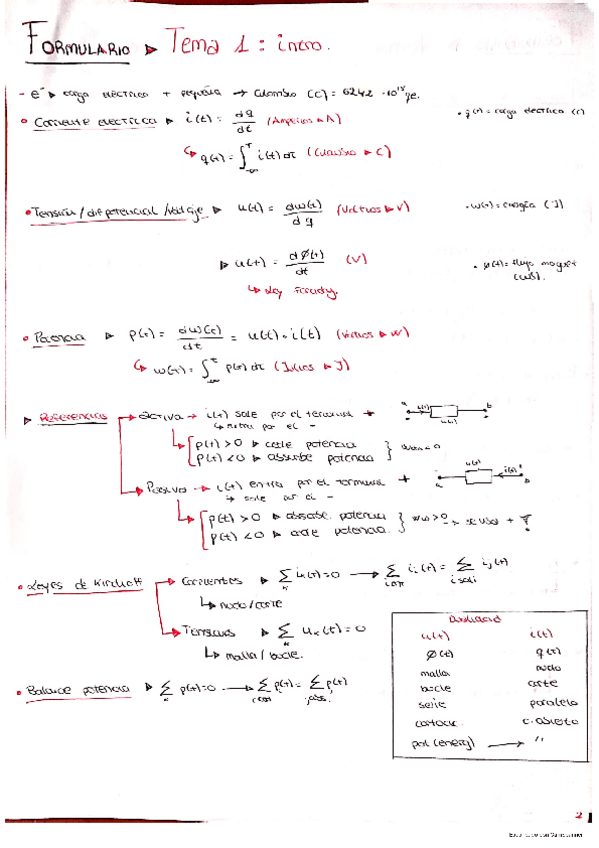 FORMULARIO ▷ Tema 1: intro.
- e⁻ ▷ carga eléctrica + pequeña → Culombio (C) = 6242 · 10¹⁵ qe.
• Corriente eléctrica ▷ i(t) = dq/dt (Amperios ▷ A)
• q(t) = carga electrica (C)
↳ q(t) = ∫ i(t) dt (Culombio ▷ C)
• Tensión / dif potencial / Voltaje ▷ u(t) = dw(t)/dq (Voltios ▷ V)
• w(t) = energía (J)
▷ u(t) = dφ(t)/dt (V)
• φ(t) = flujo magnet (Wb).
↳ ley Faraday.
• Potencia ▷ p(t) = dw(t)/dt = u(t) · i(t) (Watios ▷ W)
↳ w(t) = ∫ p(t) dt (Julios ▷ J)
▷ Referencias
→ activa → i(t) sale por el terminal +
↳ entra por el -
a i(t) b
u(t)
↳ p(t) > 0 ▷ cede potencia
p(t) < 0 ▷ absorbe potencia
→ Pasiva → i(t) entra por el terminal +
↳ sale por el -
u(t)
a i(t) b
↳ p(t) > 0 ▷ absorbe potencia
p(t) < 0 ▷ cede potencia.
w(t) > 0 se usa +
• Leyes de Kirchoff
→ Corrientes ▷ Σ iₖ(t) = 0 → Σ iᵢ(t) = Σ iⱼ(t)
↳ nudo / corte
→ Tensiones ▷ Σ uₖ(t) = 0
↳ malla / bucle.
• Balance potencia ▷ Σ p(t) = 0 → Σ p(t) = Σ p(t)
Dualidad
u(t) i(t)
φ(t) q(t)
malla nudo
bucle corte
serie paralelo
cortocir. c. abierto
pot (energ) → "
2